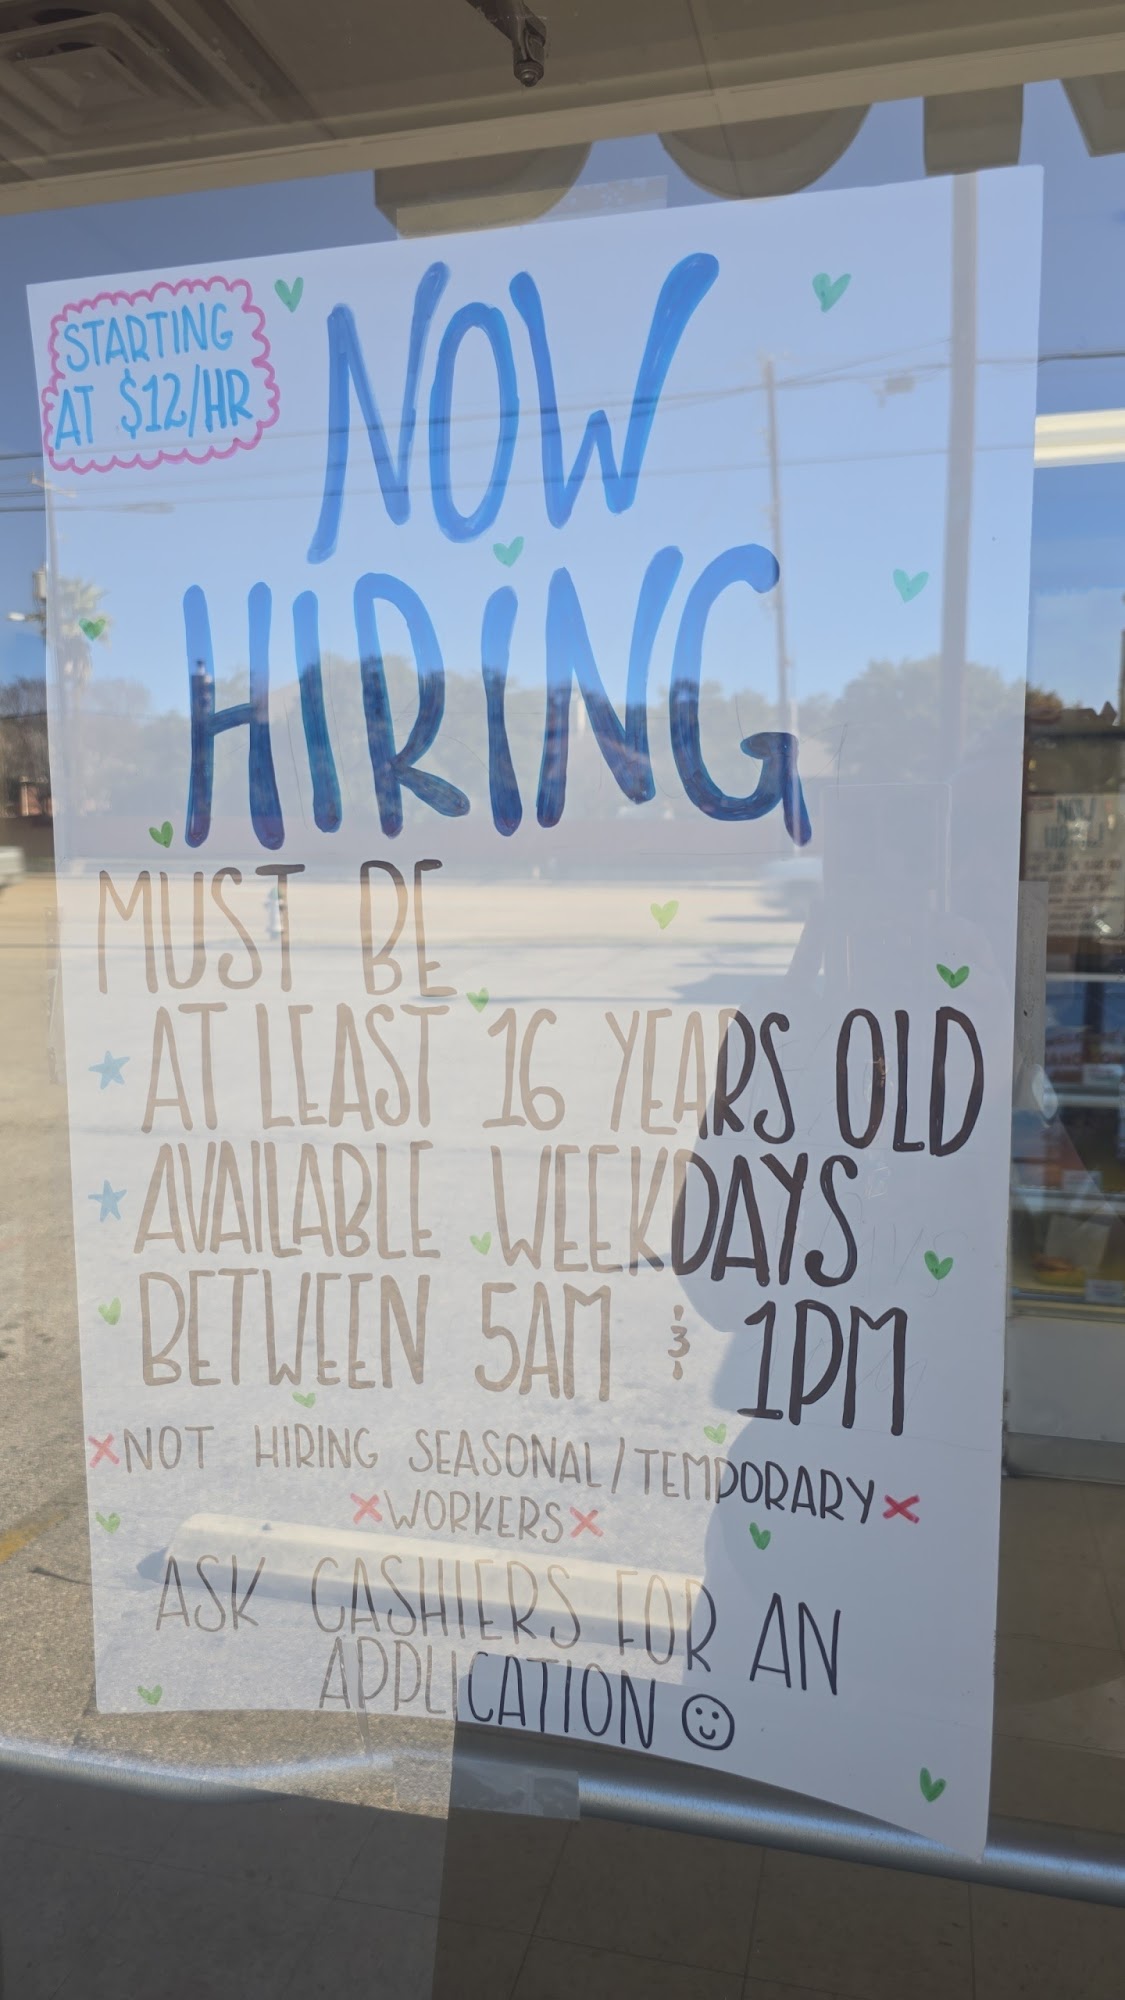 STARTING
AT $12/HR
NOW
HIRING
MUST BE
AT LEAST 16 YEARS OLD
AVAILABLE WEEKDAYS
BETWEEN 5AM & 1PM
NOT HIRING SEASONAL/TEMPORARY
WORKERS
ASK CASHIERS FOR AN
APPLICATION
NOW
HIRING!